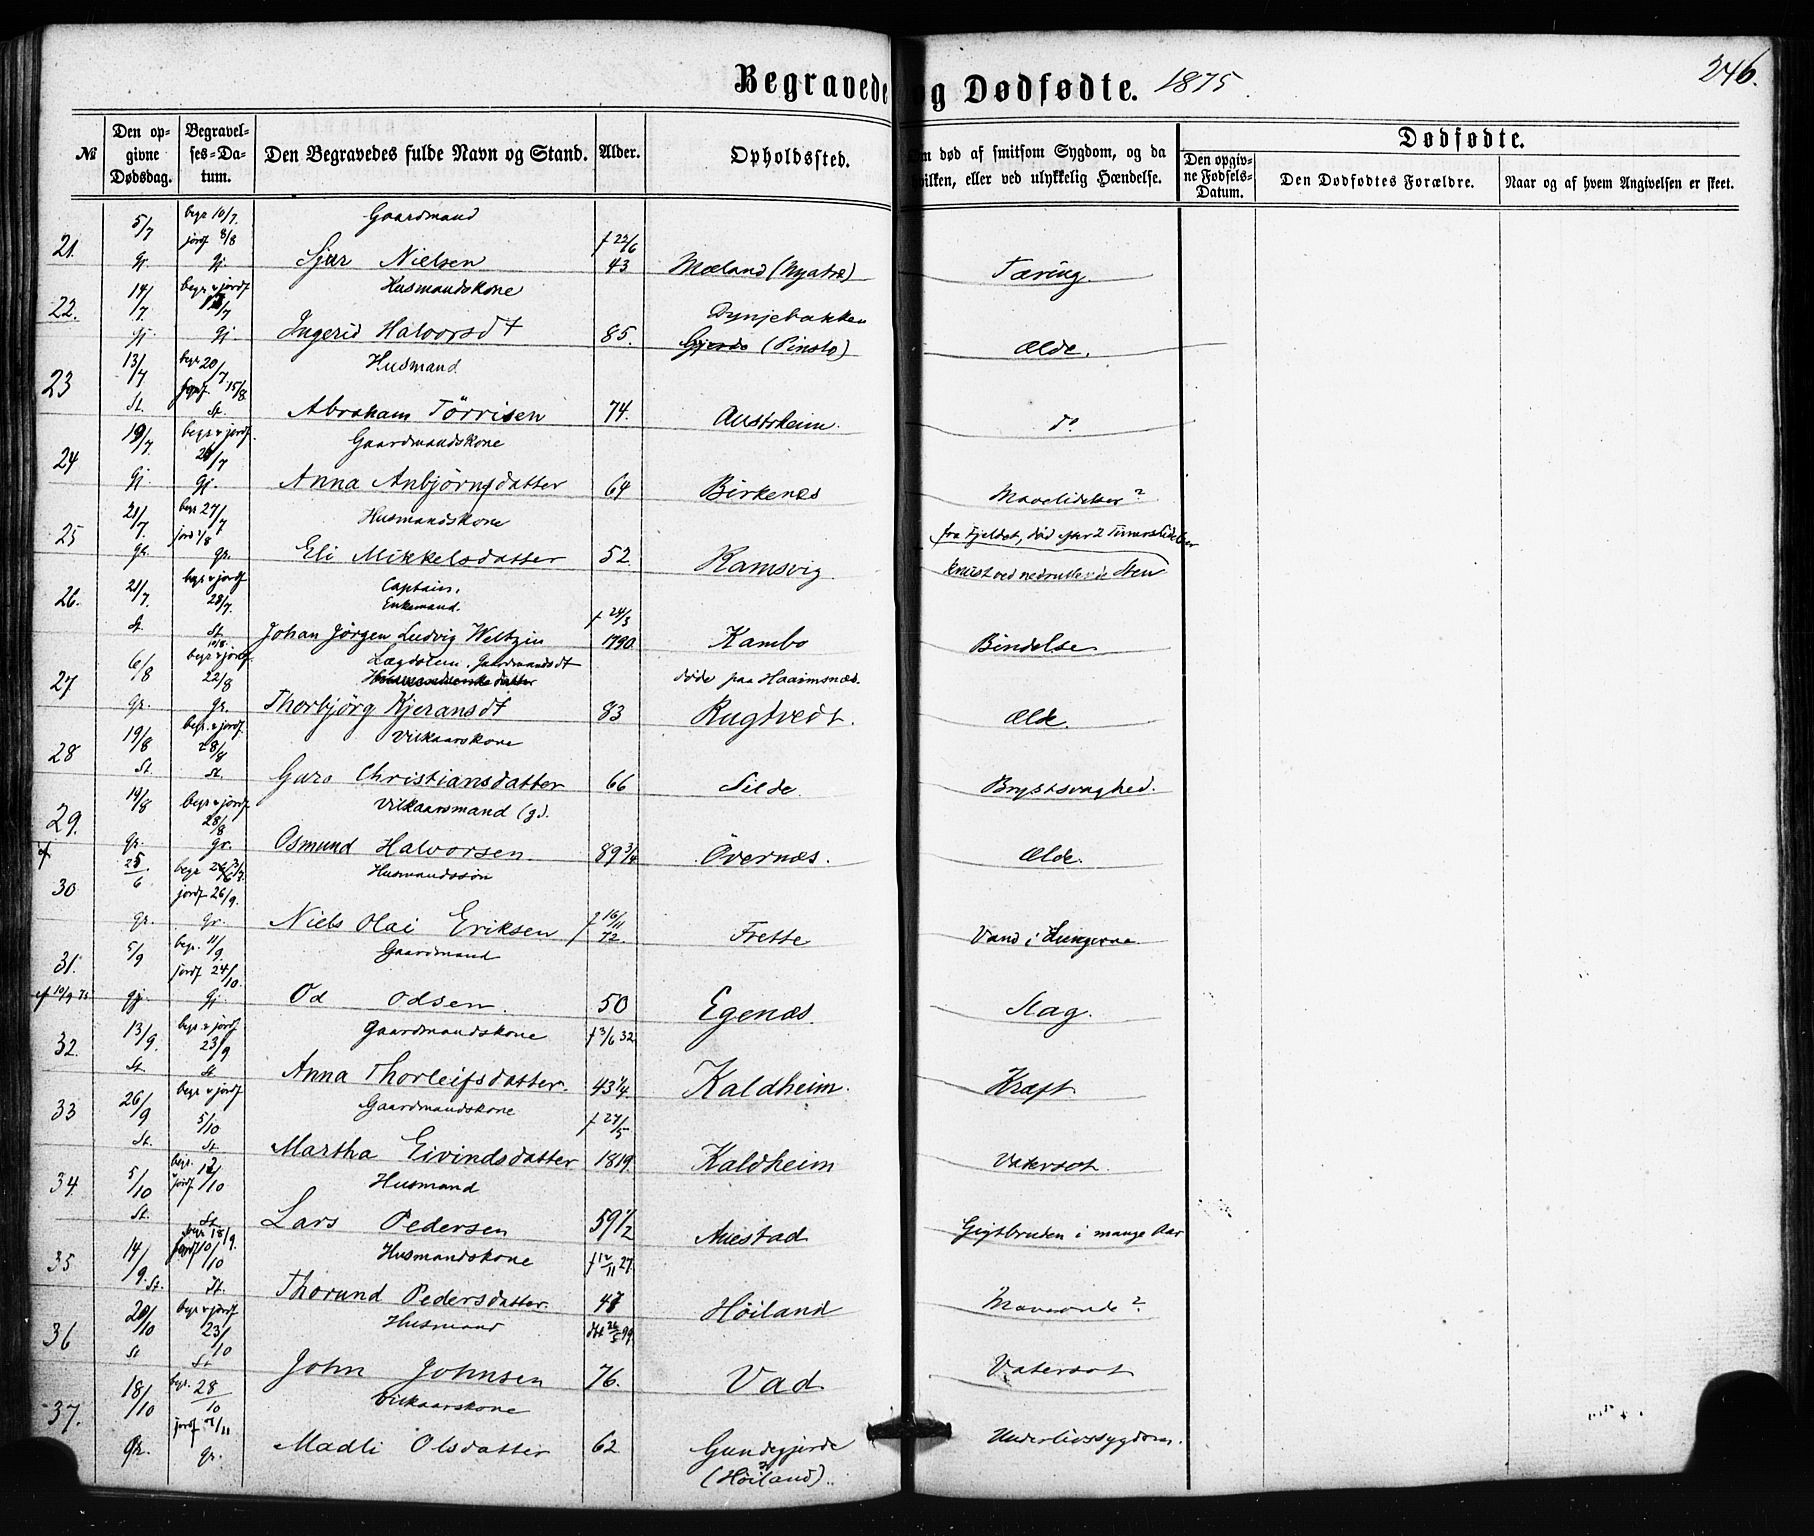 Begravede og Dødfødte. 1875.
246.
№
Den opgivne Dødsdag.
Begravelses-Datum.
Den Begravedes fulde Navn og Stand.
Alder.
Opholdssted.
Om død af smitsom Sygdom, og da hvilken, eller ved ulykkelig Hændelse.
Dødfødte.
Den opgivne Fødsels-Datum.
Den Dødfødtes Forældre.
Naar og af hvem Angivelsen er skeet.
5/7 begr 10/7. Gaardmand
jordf 8/8 f 22/6
21. gj. gj. Sjur Nielsen 43 Mæland (Nyatræ) Tæring.
14/7 begr & jordf /7 Husmandskone
22. gj. gj. Ingerid Halvorsdt 85. Dynjebakken
Gjerde (Pinslo) Ælde.
13/7 begr 20/7 Husmand
23 jordf 15/8.
St. St. Abraham Törrisen 74. Austrheim. do
19/7. begr & jordf. /7 Gaardmandskone
24 gj. gj. Anna Anbjörnsdatter 64 Birkenæs Mavelidelser?
21/7. begr 27/7 Husmandskone fra Fjeldet, død efter 2 Timers Lidelser
25 jord 1/8
gr. gr. Eli Mikkelsdatter 52. Ramsvig. knust ved nedrullende Sten
21/7. begr & jordf 28/7. Captain,
26. Enkemand. f 24/3
St. St. Johan Jörgen Ludvig Weltzin 1790. Kambo Bindelse
6/8 begr & jordf. 22/8 Lægdslem. Gaardmandsdt døde paa Haaimsnæs.
27 gr. gr. Thorbjörg Kjeransdt 83 Rugtvedt. Ælde.
19/8 begr. & jordf. 28/8 Vilkaarskone
28 St. St. Guro Christiansdatter 66 Silde. Brystsvaghed.
19/8 begr & jordf 28/8 Vilkaarsmand (g).
29. gr. gr. Osmund Halvorsen. 89 3/4 Övernæs. Ælde.
25/6 begr Husmandssön
30 jordf 26/9.
gr. gr. Niels Olai Eriksen f 16/11 72. Frette Vand i Lungerne
5/9 begr. 11/9. Gaardmand
31. jordf 24/10.
cf 10/9 75 gj. gj. Od Odsen. 50 Egenæs. Slag.
13/9. begr & jordf 23/9 Gaardmandskone f 3/6 32
32. St St Anna Thorleifsdatter. 43 1/4. Kaldheim. Kræft
26/9 begr & jordf 5/10 Gaardmandskone f 27/5
33 St. St Martha Eivindsdatter 1819. Kaldheim Vatersot.
5/10 begr. jordf 12/10 Husmand
34. St. St. Lars Pedersen 59 1/2 Auestad Gigtbruden i mange Aar
14/9. begr 18/9. jordf 10/10 Husmandskone f 12/11 27.
35 St. St. Thorund Pedersdatter. 47 Høiland Maveonde?
20/10 begr & jordf 23/10 Husmand 99
36 St St John Johnsen 76. Vad Vatersot
18/10 begr. 28/10 Vilkaarskone
37. jordf 7/11
gr. gr. Madli Olsdatter 62 Gundegjerde Underlivssygdom.
(Höiland).